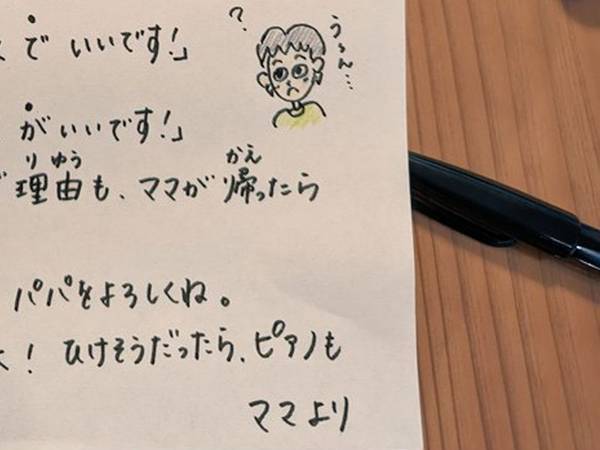 ? うーん…
で いいです!」
が いいです!」
理由も、ママが帰ったら
りゆう かえ
パパをよろしくね。
! ひけそうだったら、ピアノも
ママより